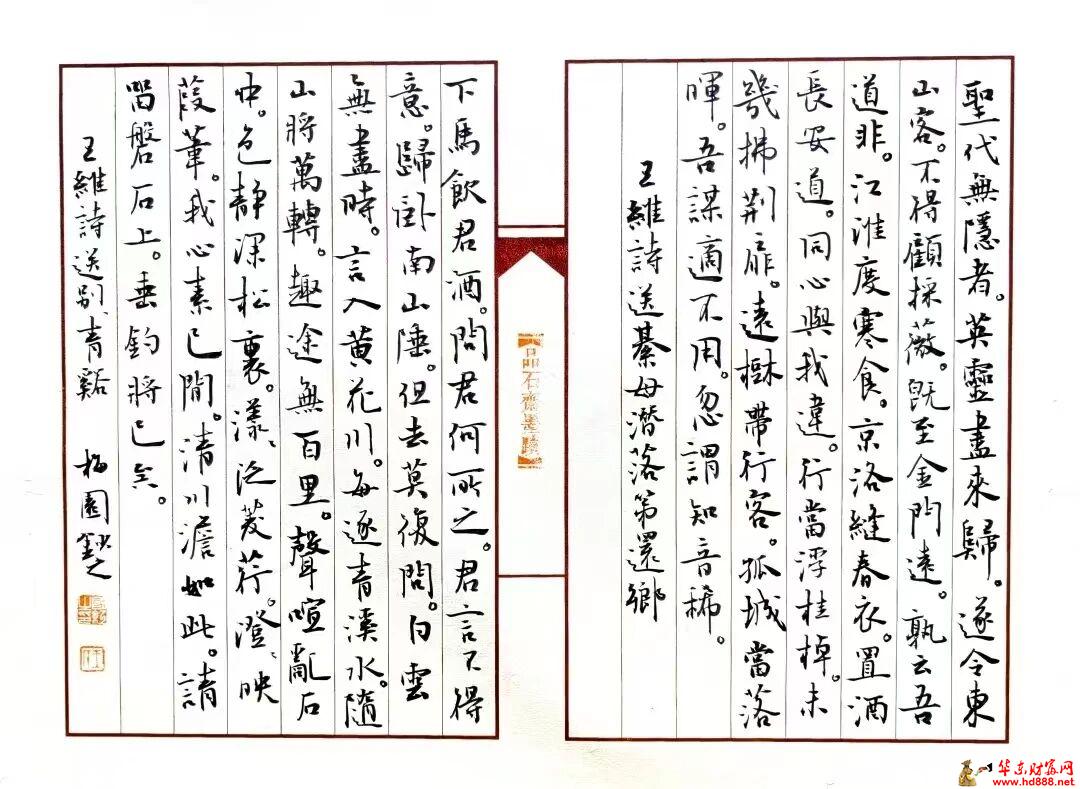 聖代無隱者。英靈盡來歸。遂令東
山客。不得顧採薇。既至金門遠。孰云吾
道非。江淮度寒食。京洛縫春衣。置酒
長安道。同心與我違。行當浮桂棹。未
幾拂荆扉。遠樹帶行客。孤城當落
暉。吾謀適不用。忽謂知音稀。
王維詩送綦母潛落第還鄉
品石齋墨蹟
下馬飲君酒。問君何所之。君言不得
意。歸卧南山陲。但去莫復問。白雲
無盡時。言入黄花川。每逐青溪水。隨
山將萬轉。趣途無百里。聲喧亂石
中。色静深松裏。漾、泛菱荇。澄、映
葭葦。我心素已閒。清川澹如此。請
留磐石上。垂釣將已矣。
王維詩送别、青谿 梅園
华东财富网
www.hd888.net